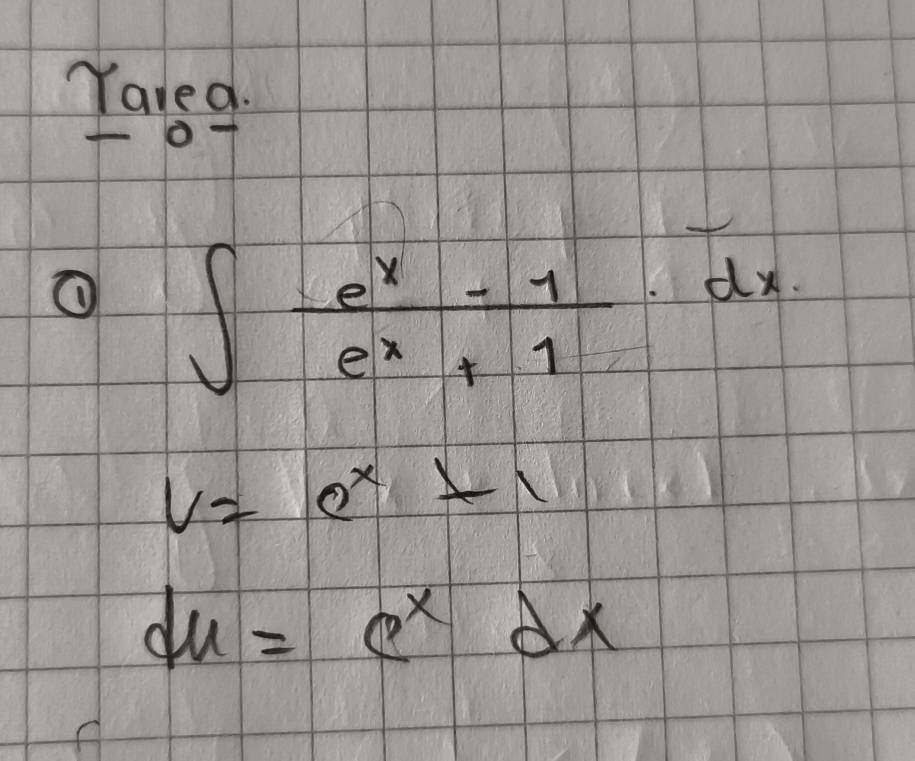 Tarea.
① ∫ (e^x - 1)/(e^x + 1) . dx.
u = e^x + 1
du = e^x dx